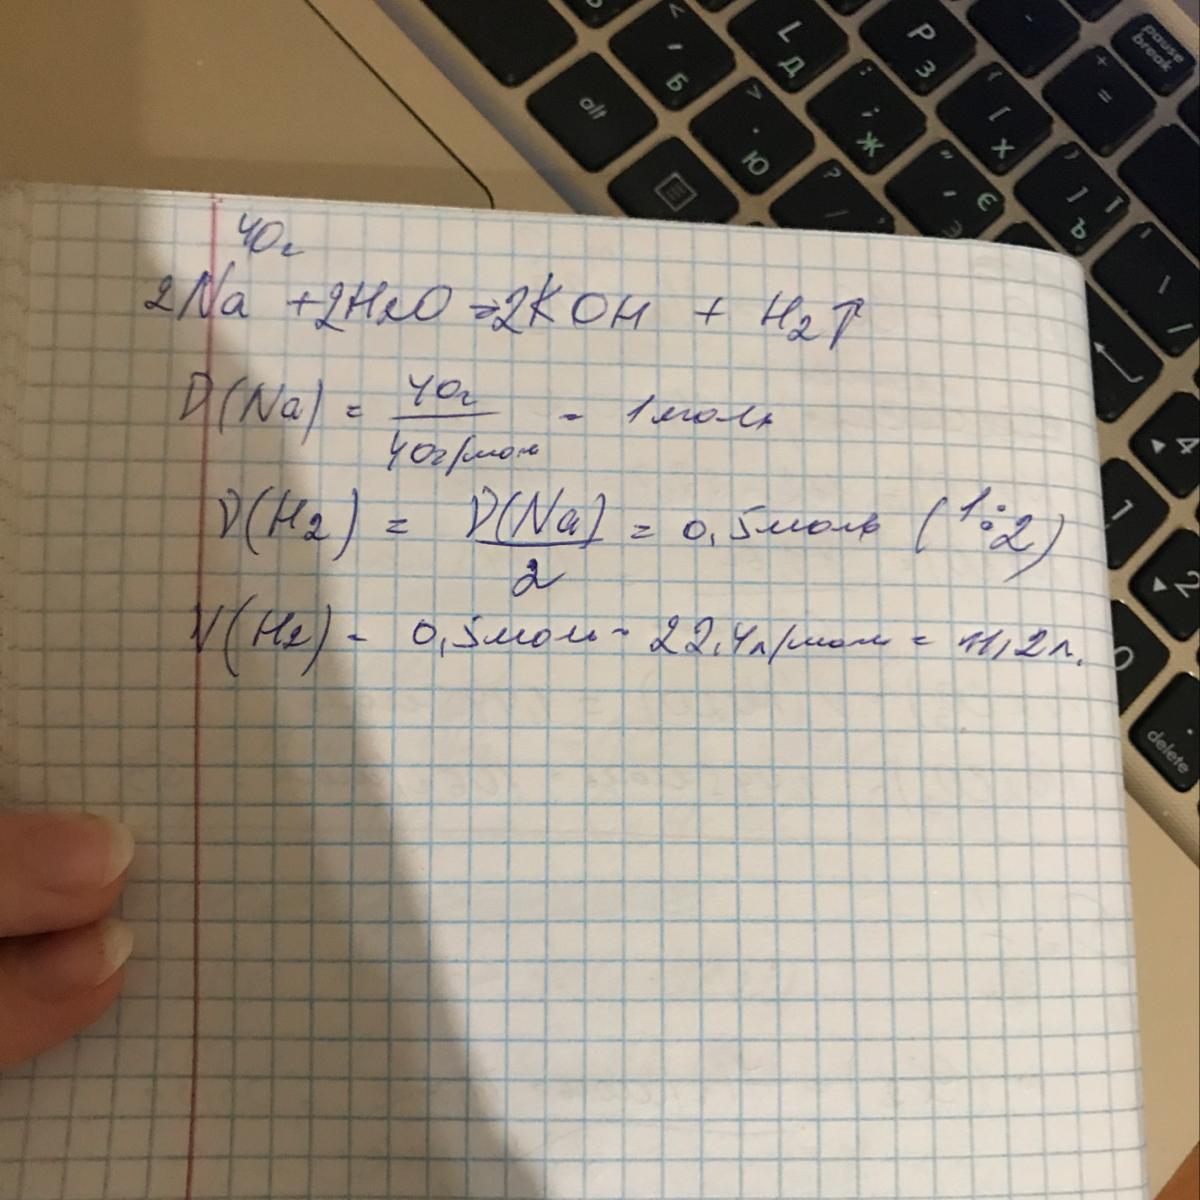 L
Д
P
З
pause
break
<
,
Б
:
;
Ж
{
[
Х
+
=
alt
>
.
Ю
"
'
Є
Э
}
]
Ї
Ъ
?
/
|
\
/
4
1
2
0
.
delete
40г
2Na + 2H2O = 2KOH + H2↑
ν(Na) = 40г / 40г/мол = 1 моль
ν(H2) = ν(Na) / 2 = 0,5 моль (1:2)
V(H2) - 0,5 мол · 22,4 л/мол = 11,2 л.